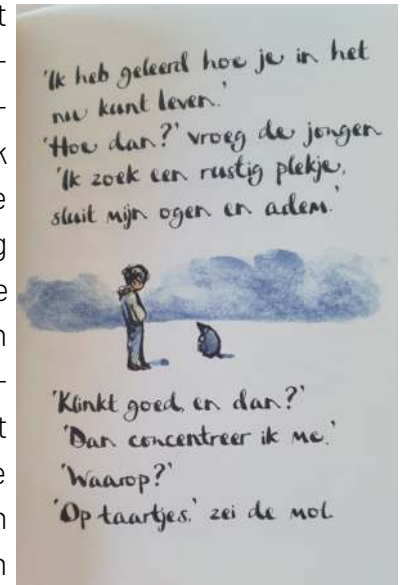 'Ik heb geleerd hoe je in het
nu kunt leven.'
'Hoe dan?' vroeg de jongen
'Ik zoek een rustig plekje,
sluit mijn ogen en adem.'
'Klinkt goed, en dan?'
'Dan concentreer ik me.'
'Waarop?'
'Op taartjes,' zei de mol.